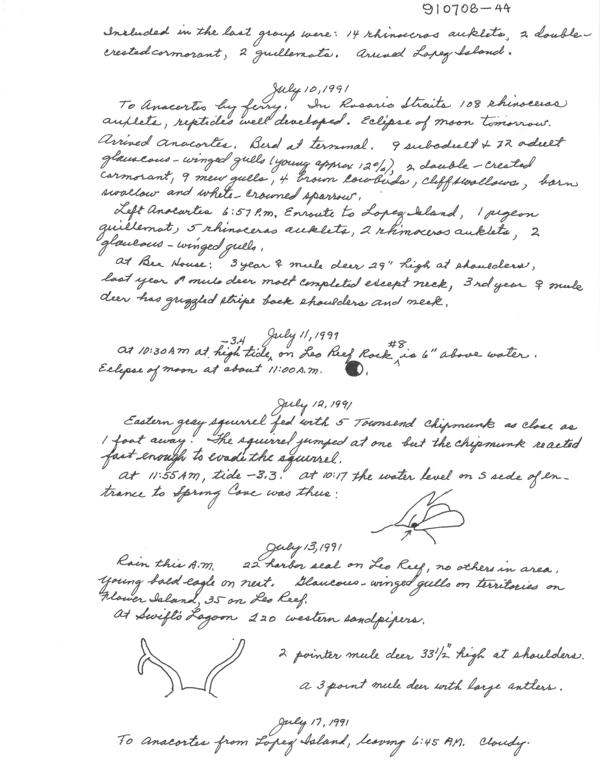 910708-44
Included in the last group were: 14 rhinoceros auklets, 2 double-
crested cormorant, 2 guillemots. Arrived Lopez Island.
July 10, 1991
To Anacortes by ferry. In Rosario Straits 108 rhinoceros
auklets, reptides well developed. Eclipse of moon tomorrow.
Arrived Anacortes. Bird at terminal. 9 subadult & 72 adult
glaucous-winged gulls (young approx 12%), 2 double-crested
cormorant, 9 mew gulls, 4 brown cowbirds, cliff swallows, barn
swallow and white-crowned sparrow.
Left Anacortes 6:57 P.M. Enroute to Lopez Island, 1 pigeon
guillemot, 5 rhinoceros auklets, 2 rhinoceros auklets, 2
glaucous-winged gulls.
At Bea House: 3 year ♀ mule deer 29" high at shoulders,
last year ♂ mule deer molt completed except neck, 3rd year ♀ mule
deer has grizzled stripe back shoulders and neck.
July 11, 1991
At 10:30 AM at -3.4 high tide, on Leo Reef Rock #8 is 6" above water.
Eclipse of moon at about 11:00 A.M.
July 12, 1991
Eastern gray squirrel fed with 5 Townsend chipmunk as close as
1 foot away. The squirrel jumped at one but the chipmunk reacted
fast enough to evade the squirrel.
At 11:55 AM, tide -3.3. At 10:17 the water level on S side of en-
trance to Spring Cove was thus:
July 13, 1991
Rain this A.M. 22 harbor seal on Leo Reef, no others in area.
Young bald eagle on nest. Glaucous-winged gulls on territories on
Flower Island, 35 on Leo Reef.
At Swift's Lagoon 120 western sandpipers.
2 pointer mule deer 33½" high at shoulders.
a 3 point mule deer with large antlers.
July 17, 1991
To Anacortes from Lopez Island, leaving 6:45 A.M. Cloudy.